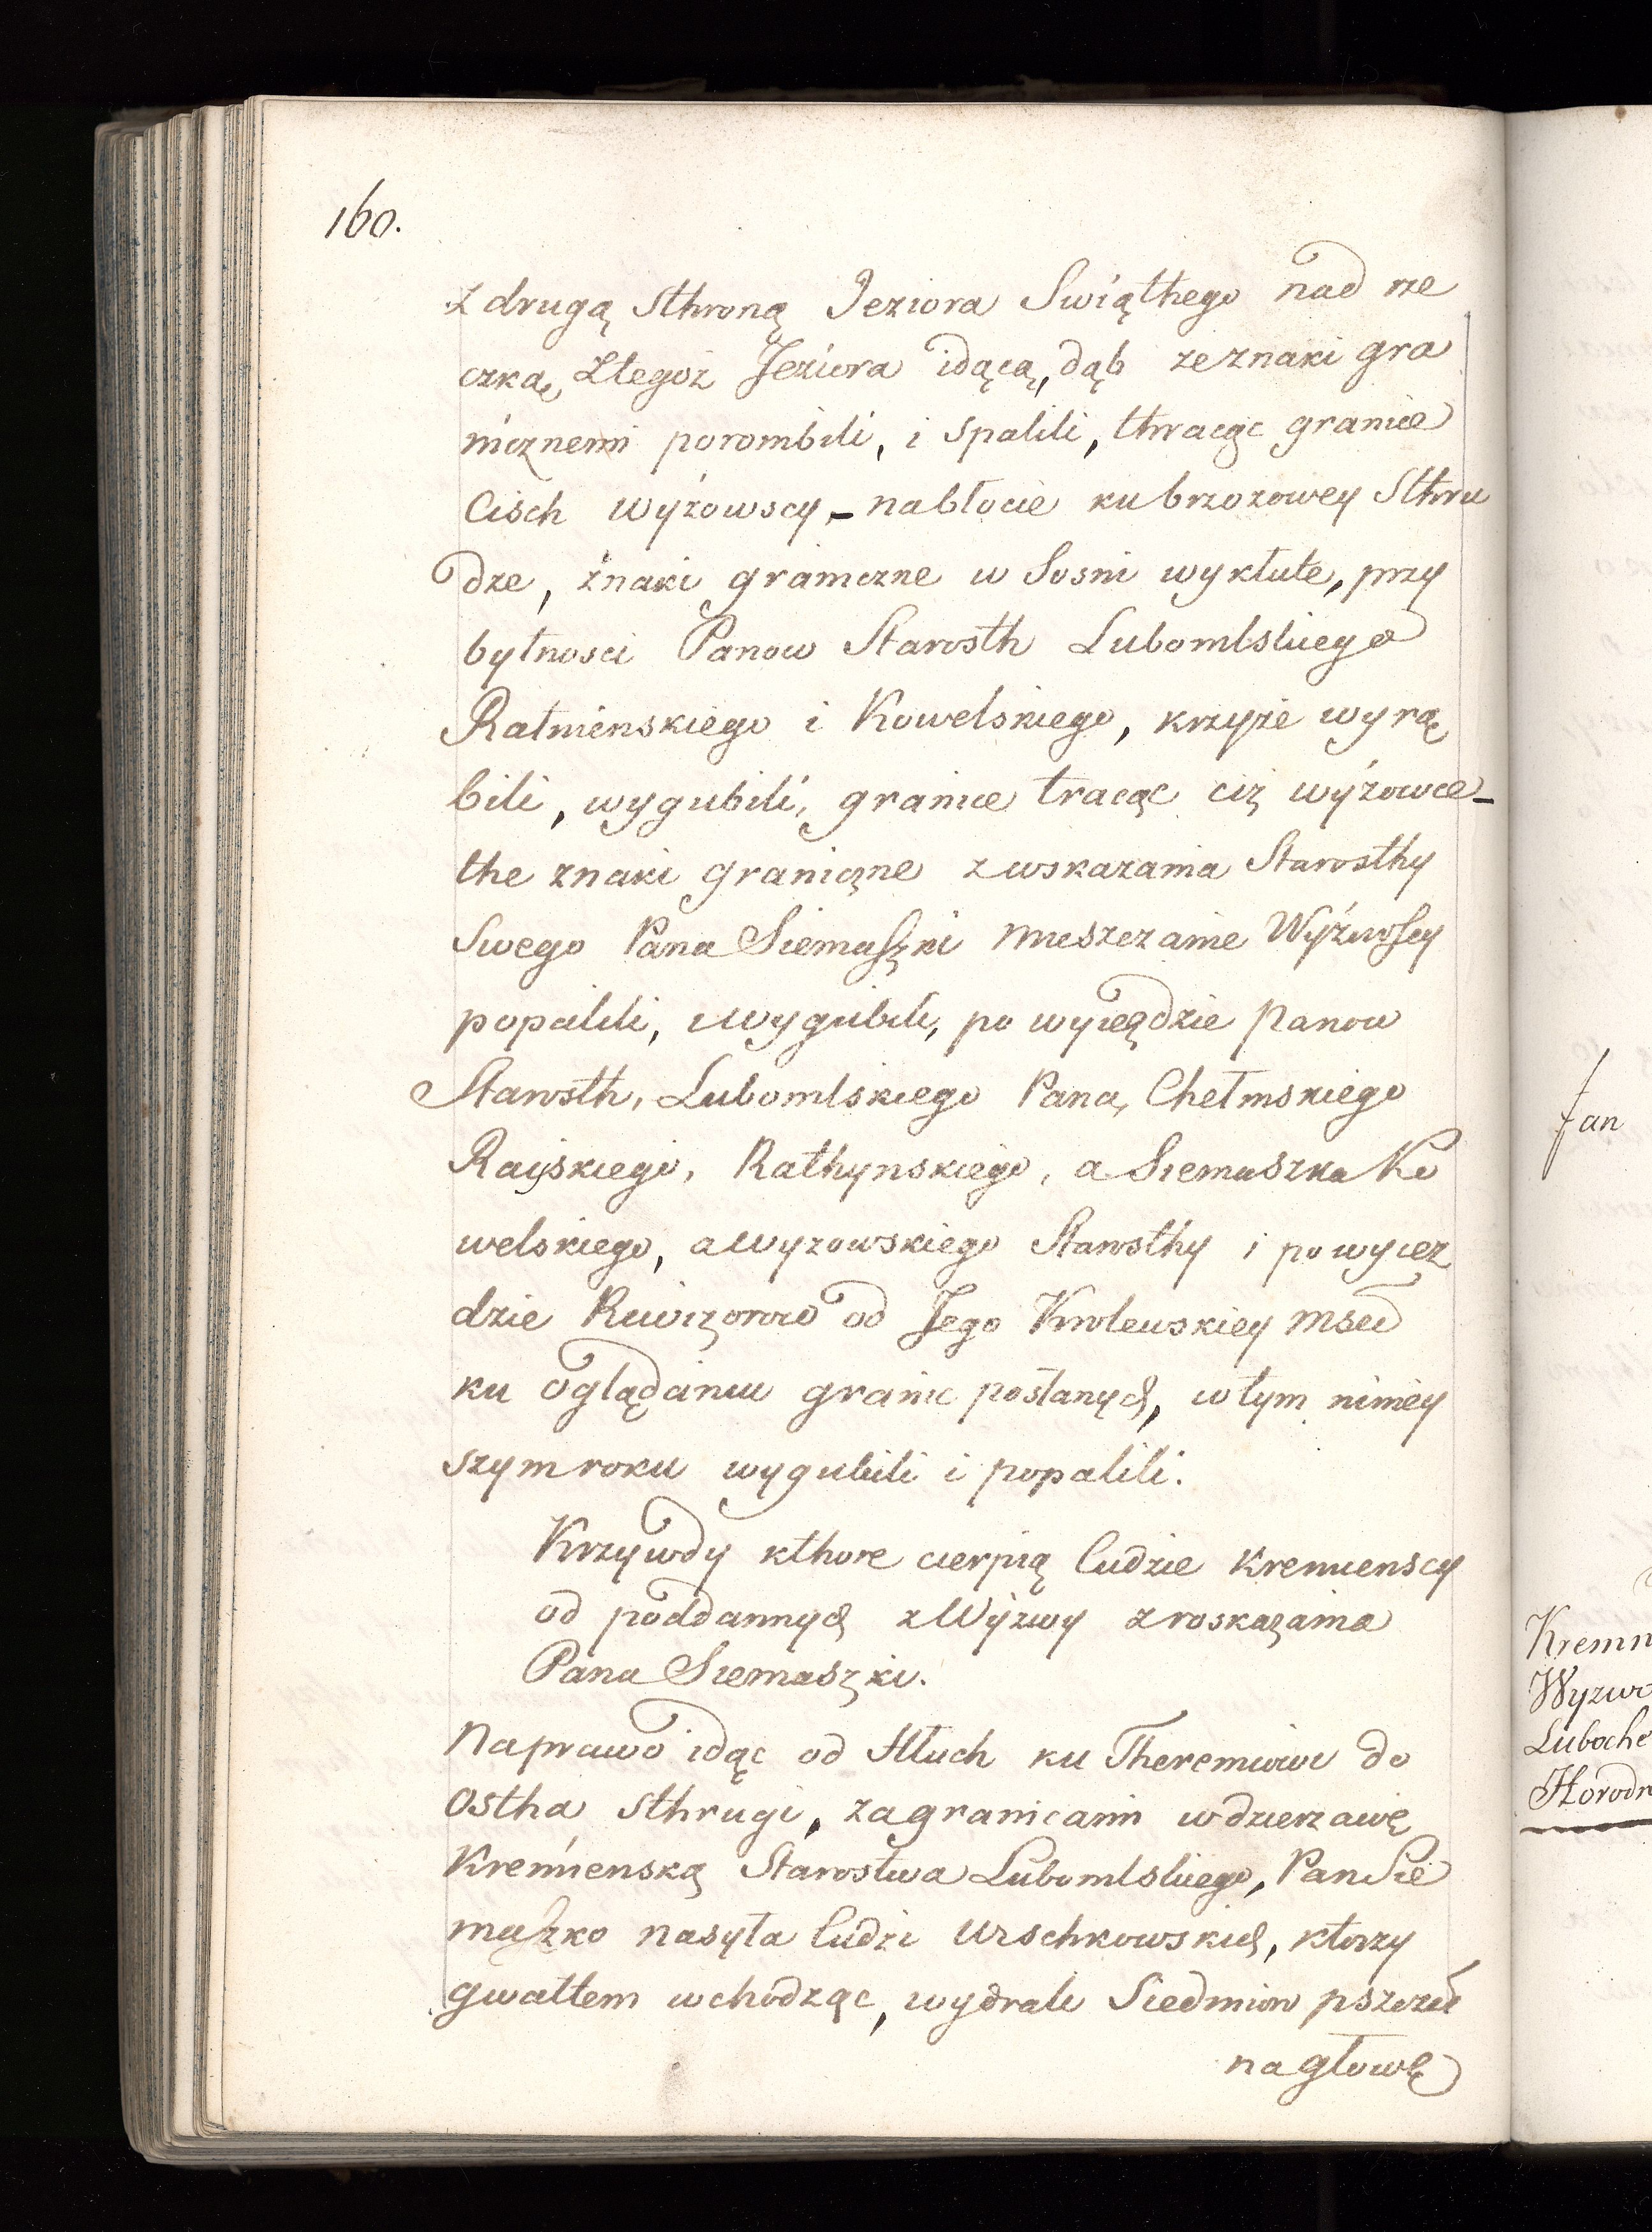 160.
z drugą sthroną Jeziora Swiąthego nad rze
czką, ztegoż Jeziora idącą, dąb ze znaki gra
nicznemi porombili, i spalili, thracąc granice
Cisch wyżowscy, – nabłocie ku brzozowey Sthru
dze, znaki graniczne w Sosni wykłute, przy
bytnosci Panow Starosth Lubomlskiego
Ratnienskiego i Kowelskiego, krzyże wyrą
bili, wygubili, granice tracąc ciż wyżowce –
the znaki graniczne zwskazania Starosthy
Swego Pana Siemaszki mieszczanie Wyżwoscy
popalili, i wygubili, po wyieździe Panow
Starosth, Lubomlskiego Pana, Chełmskiego
Rayskiego, Rathynskiego, a Siemaszka Ko
welskiego, a wyzowskiego Starosthy i po wyiez
dzie Rewizorow od Jego Krolewskiey Msci
ku oglądaniu granic posłanych, w tym niniey
szym roku wygubili i popalili.
Krzywdy kthore cierpią ludzie Kremienscy
od poddannych z Wyżwy z roskazania
Pana Siemaszki.
Naprawo idąc od Hłuch ku Theremiowi do
Ostha sthrugi, za granicami w dzierzawę
Kremienską Starostwa Lubomlskiego, Pan Sie
maszko nasyła ludzi Urschkowskich, ktorzy
gwałtem wchodząc, wydrali Siedmior pszczół
na głowę
Jan
Kremn
Wyzwo
Luboche
Horodn